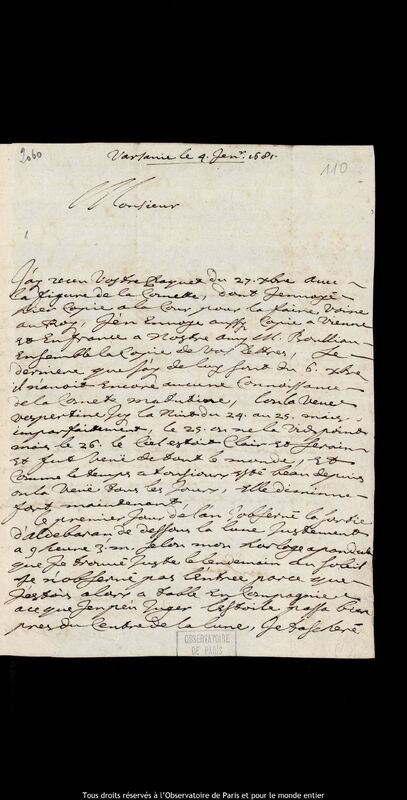 2060
Varsavie le 4. Jenr. 1681.
110
Monsieur
J'ay receu Vostre Paquet du 27. xbre avec
la figure de la Comette, dont J'envoye
hier Copie a la Cour pour la faire Voire
au Roy, J'en Envoye aussy Copie a Vienne
Et En france a Nostre amy M. Boulliau
Ensemble la Copie de Vos lettres, Je
derniere que J'ay de luy sont du 6. xbre
il n'avoit Encore aucune Connoissance
de la Comete matutine, lon la Veue
vespertine Icy la Nuit du 24. au 25. mais
imparfaitement, le 25. on ne la Vid point
mais le 26. le Ciel estoit Clair Et serain
Et fut veüe de tout le monde, Et
comme le temps a tousjours esté beau depuis
on la veüe tous les Jours, Elle diminue
fort maintenant
Le premier Jour de l'an J'observé la sortie
d'Aldebaran de dessous la lune Justement
a 9 heure 3. m. selon mon horloge a pendule
que Je trouvé Juste le lendemain au soleil
Je n'observé pas l'entree parce que
J'estois alors a table En Compagnie
a ce que J'en peu Juger l'estoile passa bien
pres du Centre de la lune, Je tascheré
OBSERVATOIRE
DE PARIS
Tous droits réservés à l'Observatoire de Paris et pour le monde entier